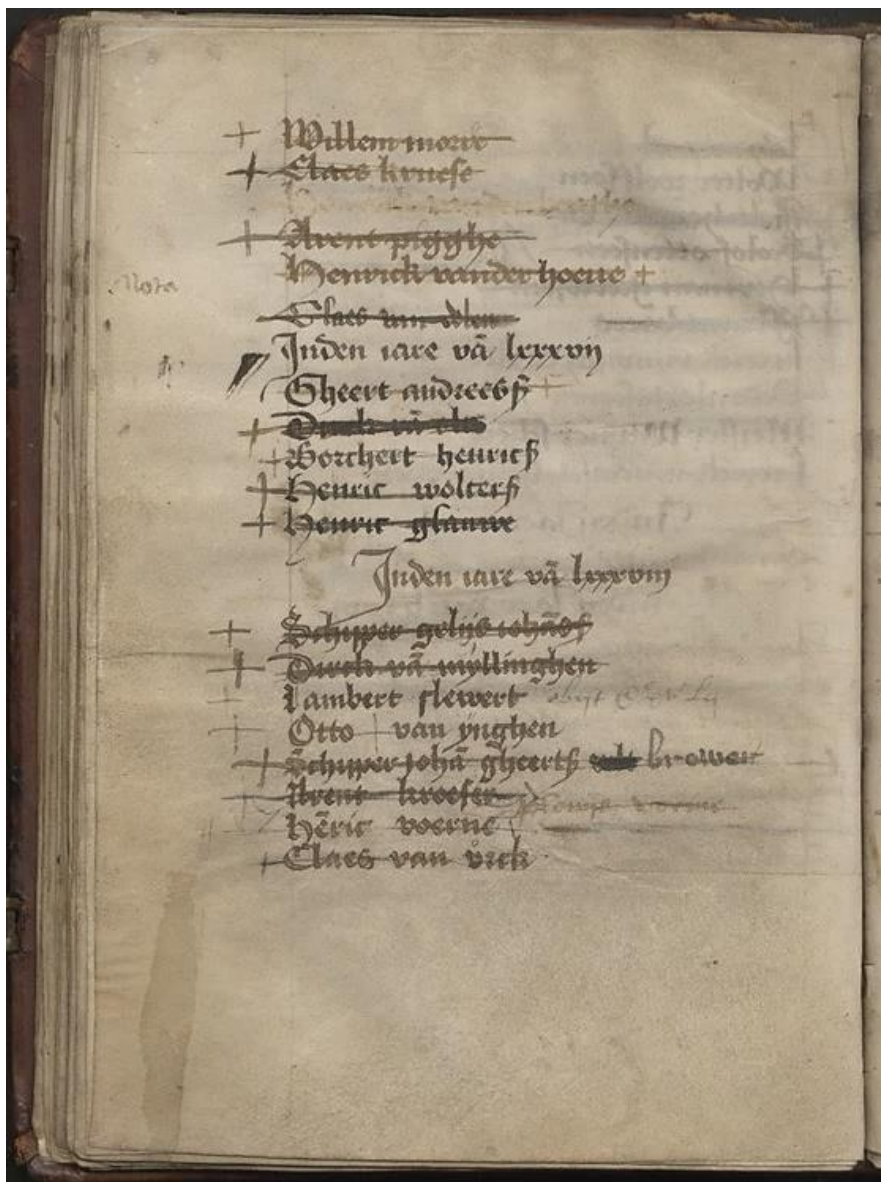 + Willem morre
+ Claes kruese
+ Arent pigghe
Henrick vander hoeue +
Nota
Claes van
Inden iare vā lxxxvij
Gheert andreesß +
+ Dirck vā
+ Borchert henricß
+ Henric wolterß
+ Henric glauwe
Inden iare vā lxxxviij
+ Schipper gelijs iohāsß
+ Dirck vā myllinghen
+ Lambert slewert obijt
+ Otto van ynghen
+ Schipper johā gheertß brower
+ Arent kroeser
Hēric voerne
+ Claes van vick